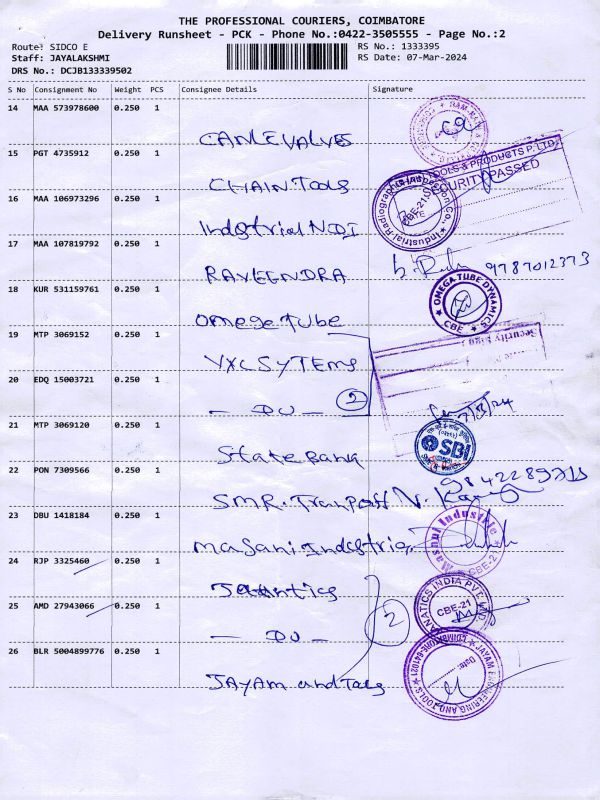 THE PROFESSIONAL COURIERS, COIMBATORE
Delivery Runsheet - PCK - Phone No.:0422-3505555 - Page No.:2
Route: SIDCO E
RS No.: 1333395
Staff: JAYALAKSHMI
RS Date: 07-Mar-2024
DRS No.: DCJB133339502
S No Consignment No Weight PCS Consignee Details Signature
14 MAA 573978600 0.250 1
15 PGT 4735912 0.250 1
CHAIN TOOLS
TOOLS & PRODUCTS P. LTD.
SECURITY PASSED
16 MAA 106973296 0.250 1
Indstrial NDI
Industrial Radiography Inspection Co.,
17 MAA 107819792 0.250 1
RAVEENDRA
9787012373
18 KUR 531159761 0.250 1
Omega Tube
OMEGA TUBE DYNAMICS
CBE
19 MTP 3069152 0.250 1
VXL SYTEms
20 EDQ 15003721 0.250 1
- DO -
2
7/3/24
21 MTP 3069120 0.250 1
State Bank
SBI
22 PON 7309566 0.250 1
SMR.
23 DBU 1418184 0.250 1
masani. Industries
CBE-21
24 RJP 3325460 0.250 1
25 AMD 27943066 0.250 1
- DO -
2
INDIA PVT
CBE-21
26 BLR 5004899776 0.250 1
JAYAM and Tools
JAYAM ENGINEERING AND TOOLS
COIMBATORE-641021
Date: